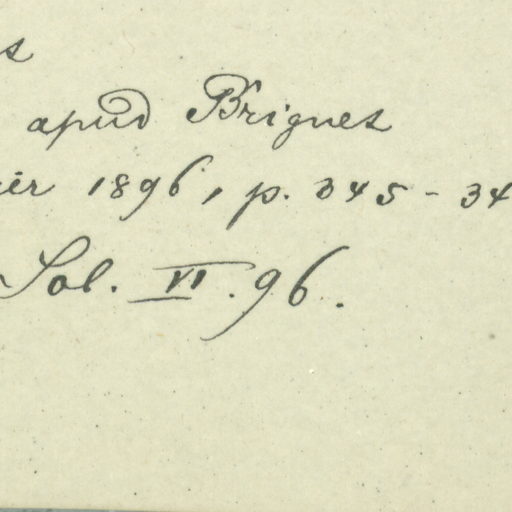 s
apud Briquet
ier 1896, p. 345-34
Sol. VI. 96.